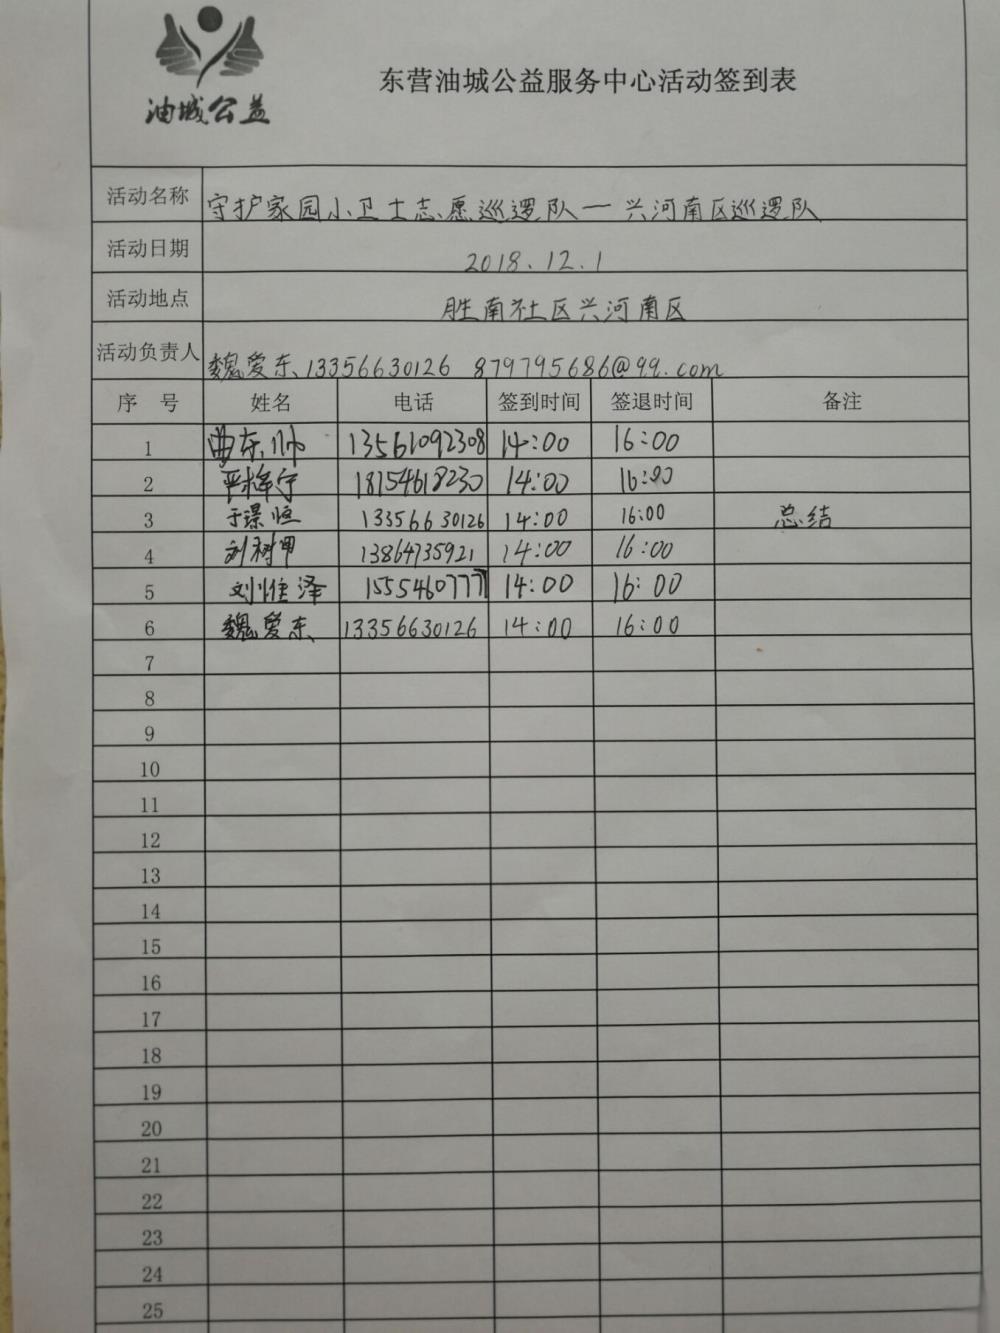 油城公益
东营油城公益服务中心活动签到表
活动名称 守护家园小卫士志愿巡逻队一兴河南区巡逻队
活动日期 2018.12.1
活动地点 胜南社区兴河南区
活动负责人 魏爱东 13356630126 879795686@qq.com
序 号 姓名 电话 签到时间 签退时间 备注
1 曲东帅 13561092308 14:00 16:00
2 严梓宁 18154618230 14:00 16:00
3 于璟恒 13356630126 14:00 16:00 总结
4 刘树甲 13864735921 14:00 16:00
5 刘惟泽 15554607777 14:00 16:00
6 魏爱东 13356630126 14:00 16:00
7
8
9
10
11
12
13
14
15
16
17
18
19
20
21
22
23
24
25